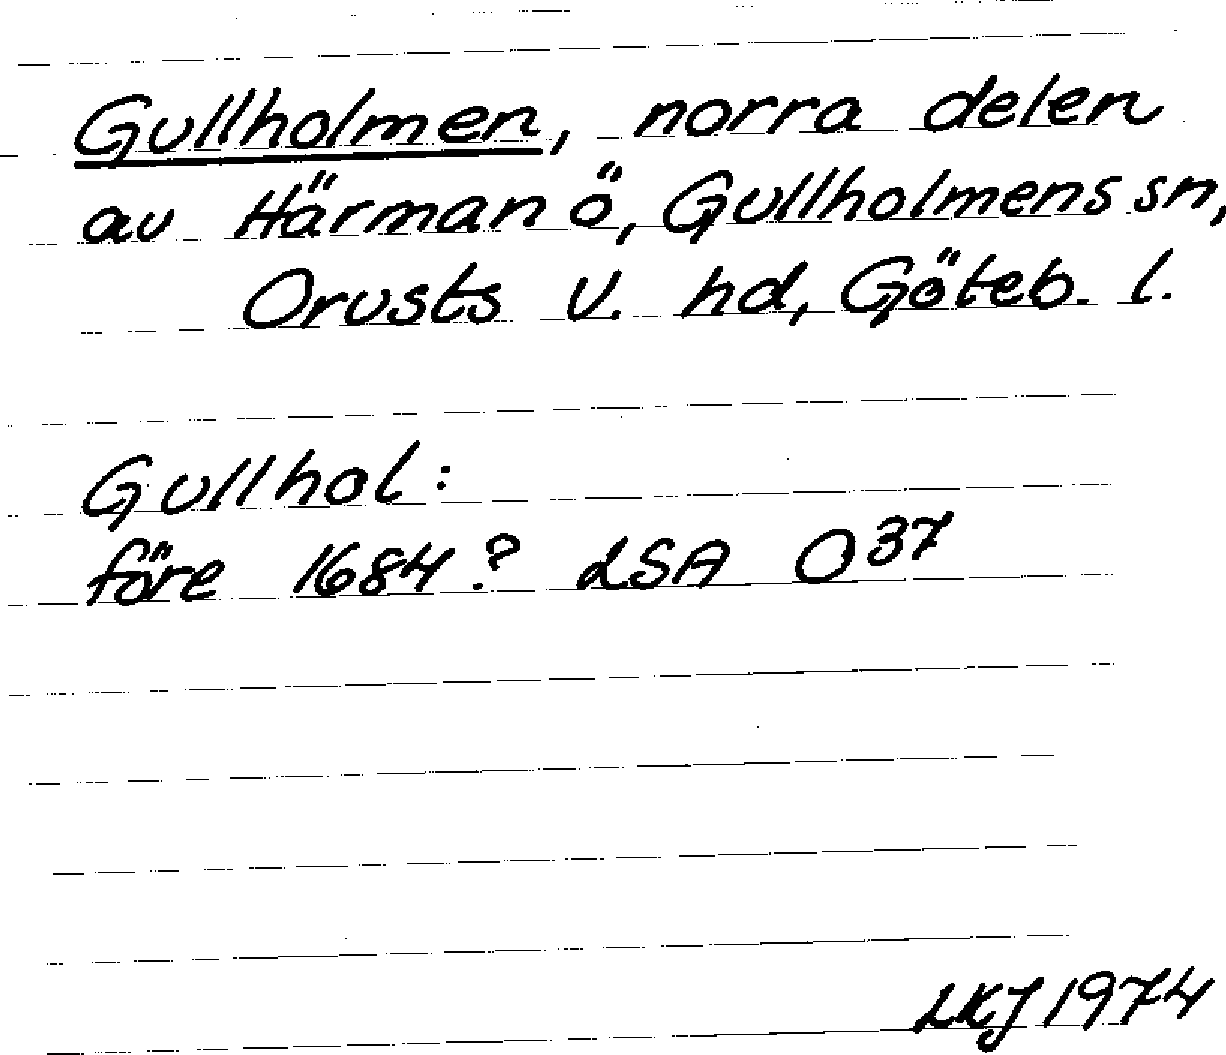 Gullholmen, norra delen
av Härmanö, Gullholmens sn,
Orusts V. hd, Göteb. l.
Gullhol:
före 1684? LSA O37
LKJ 1974